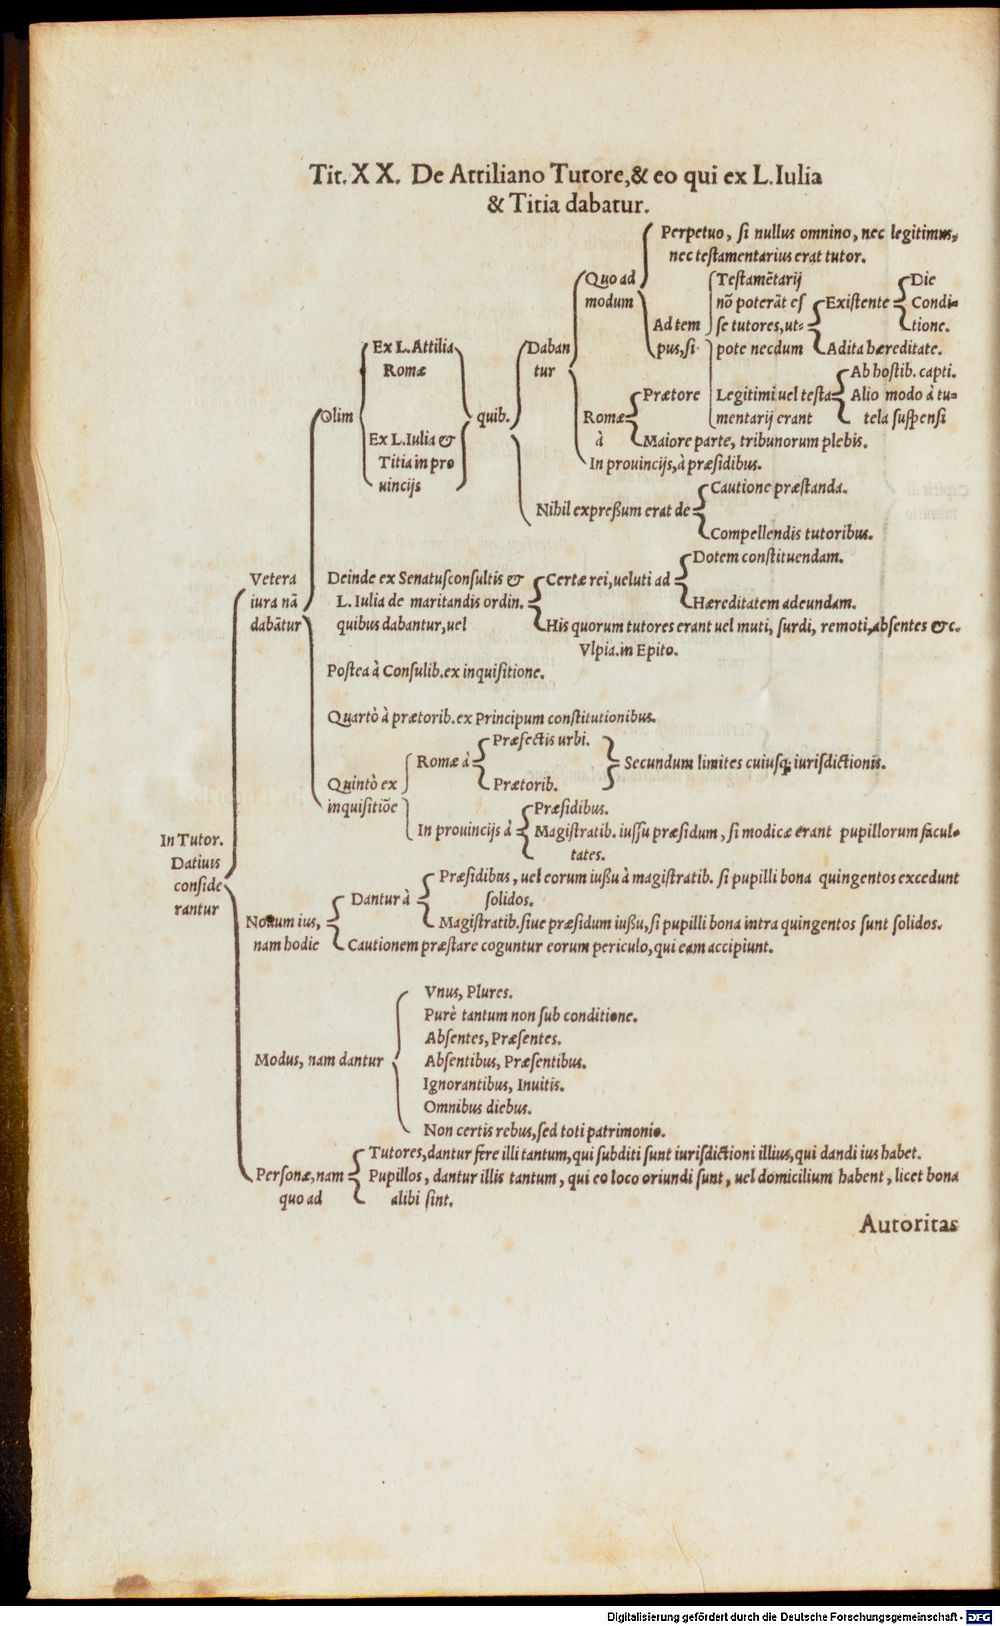 Tit. XX. De Attiliano Tutore, & eo qui ex L. Iulia
& Titia dabatur.
Perpetuo, si nullus omnino, nec legitimus,
nec testamentarius erat tutor.
Quo ad
modum
Ad tem
pus, si
Testamētarij
nō poterāt es
se tutores, ut=
pote necdum
Existente
Die
Condi=
tione.
Adita hæreditate.
Legitimi uel testa
mentarij erant
Ab hostib. capti.
Alio modo à tu=
tela suspensi
Ex L. Attilia
Romæ
Ex L. Iulia &
Titia in pro
uincijs
Olim
quib.
Daban
tur
Romæ
à
Prætore
Maiore parte, tribunorum plebis.
In prouincijs, à præsidibus.
Nihil expreßum erat de
Cautione præstanda.
Compellendis tutoribus.
Vetera
iura nā
dabātur
Deinde ex Senatusconsultis &
L. Iulia de maritandis ordin.
quibus dabantur, uel
Certæ rei, ueluti ad
Dotem constituendam.
Hæreditatem adeundam.
His quorum tutores erant uel muti, surdi, remoti, absentes &c.
Vlpia. in Epito.
Postea à Consulib. ex inquisitione.
Quartò à prætorib. ex Principum constitutionibus.
Quintò ex
inquisitiōe
Romæ à
Præfectis urbi.
Prætorib.
Secundum limites cuiusq; iurisdictionis.
In prouincijs à
Præsidibus.
Magistratib. iussu præsidum, si modicæ erant pupillorum facul=
tates.
In Tutor.
Datiuis
conside
rantur
Nouum ius,
nam hodie
Dantur à
Præsidibus, uel eorum iußu à magistratib. si pupilli bona quingentos excedunt
solidos.
Magistratib. siue præsidum iußu, si pupilli bona intra quingentos sunt solidos.
Cautionem præstare coguntur eorum periculo, qui eam accipiunt.
Modus, nam dantur
Vnus, Plures.
Purè tantum non sub conditione.
Absentes, Præsentes.
Absentibus, Præsentibus.
Ignorantibus, Inuitis.
Omnibus diebus.
Non certis rebus, sed toti patrimonio.
Personæ, nam
quo ad
Tutores, dantur ferè illi tantum, qui subditi sunt iurisdictioni illius, qui dandi ius habet.
Pupillos, dantur illis tantum, qui eo loco oriundi sunt, uel domicilium habent, licet bona
alibi sint.
Autoritas
Digitalisierung gefördert durch die Deutsche Forschungsgemeinschaft - DFG